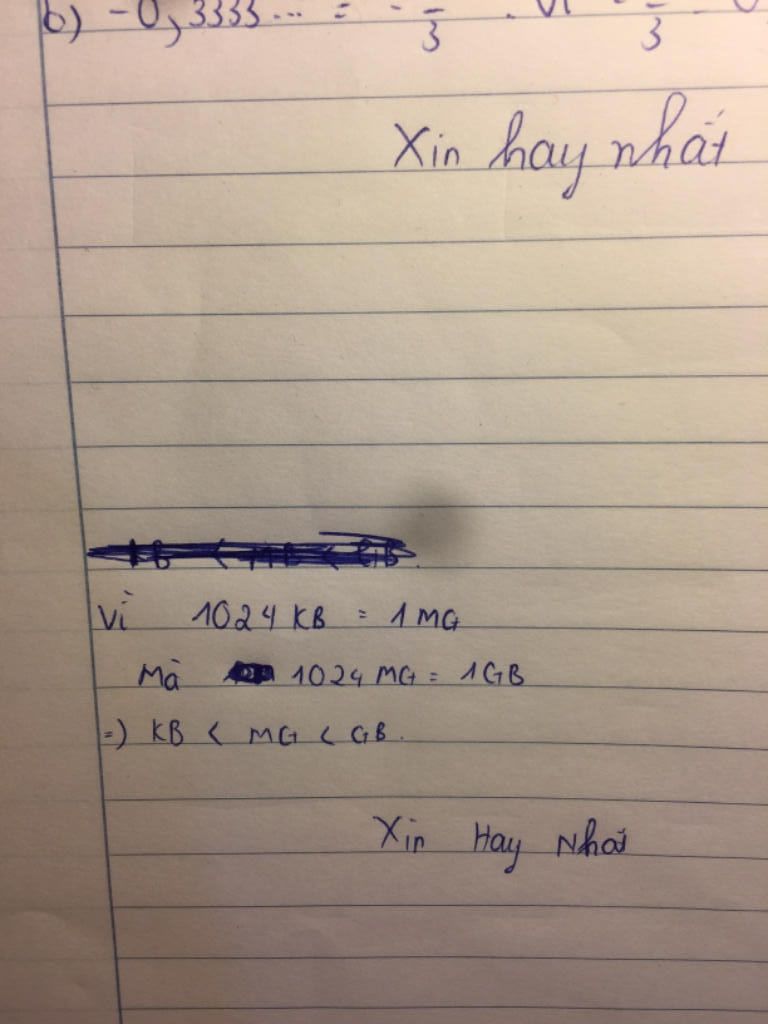 b) -0,3333... = - 3 . Vì - 3
Xin hay nhất
KB < MB < GB
Vì 1024 KB = 1 MG
Mà 1024 MG = 1GB
=) KB < MG < GB.
Xin Hay Nhất